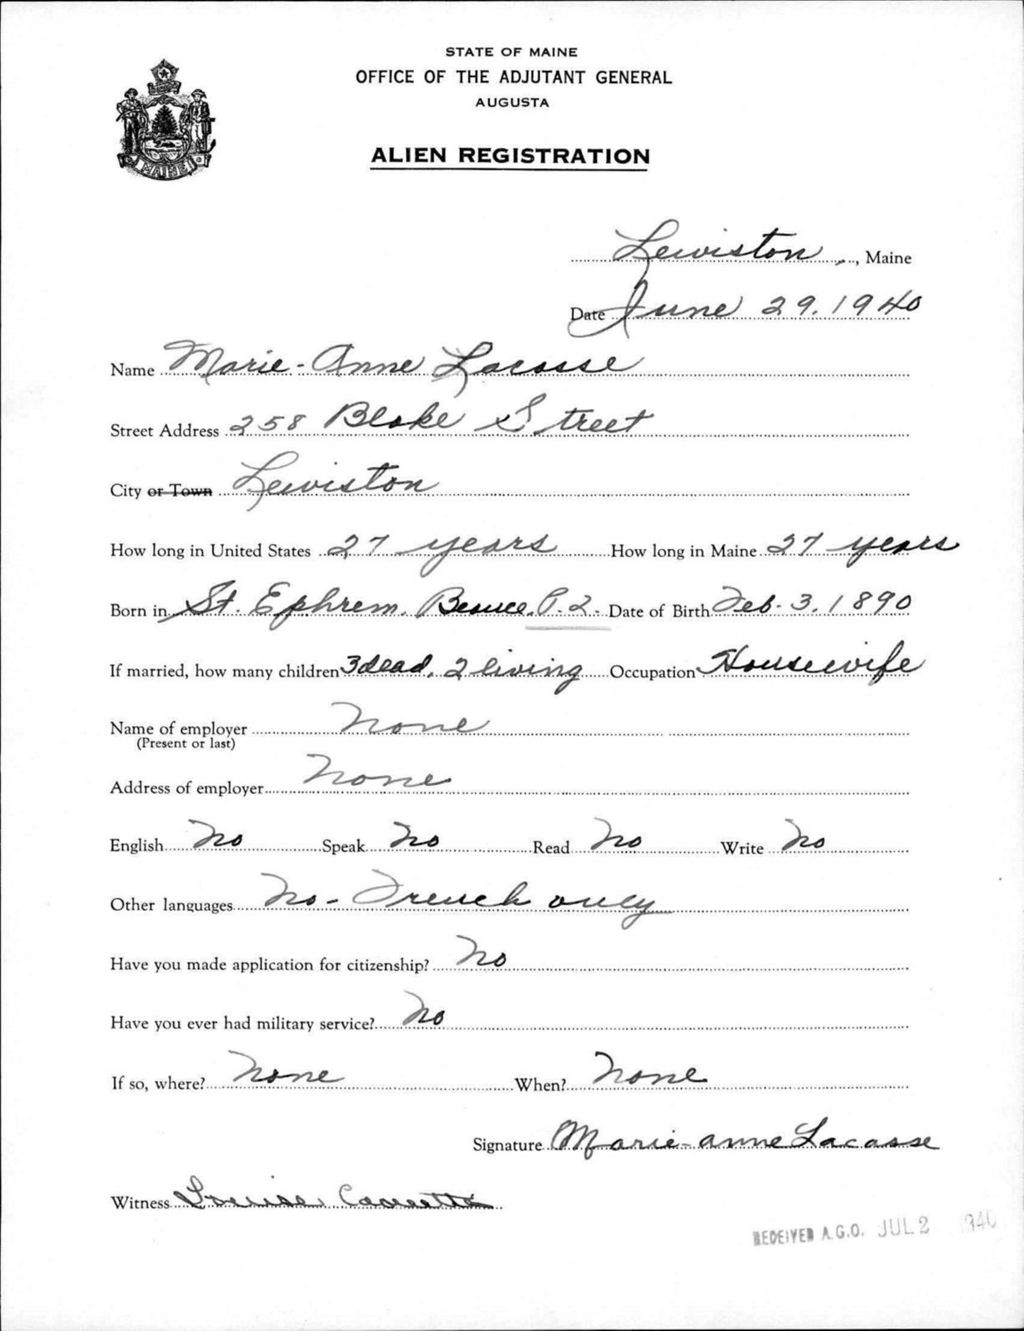 STATE OF MAINE
OFFICE OF THE ADJUTANT GENERAL
AUGUSTA
ALIEN REGISTRATION
MAINE
Lewiston, Maine
Date June 29, 1940
Name Marie-Anne Lacasse
Street Address 258 Blake Street
City or Town Lewiston
How long in United States 27 years How long in Maine 27 years
Born in St. Ephrem, Beauce, P.Q. Date of Birth Feb. 3, 1890
If married, how many children 3 dead, 2 living Occupation Housewife
Name of employer None
(Present or last)
Address of employer None
English No Speak No Read No Write No
Other languages No - French only
Have you made application for citizenship? No
Have you ever had military service? No
If so, where? None When? None
Signature Marie-Anne Lacasse
Witness Louise
RECEIVED A.G.O. JUL 2 1940